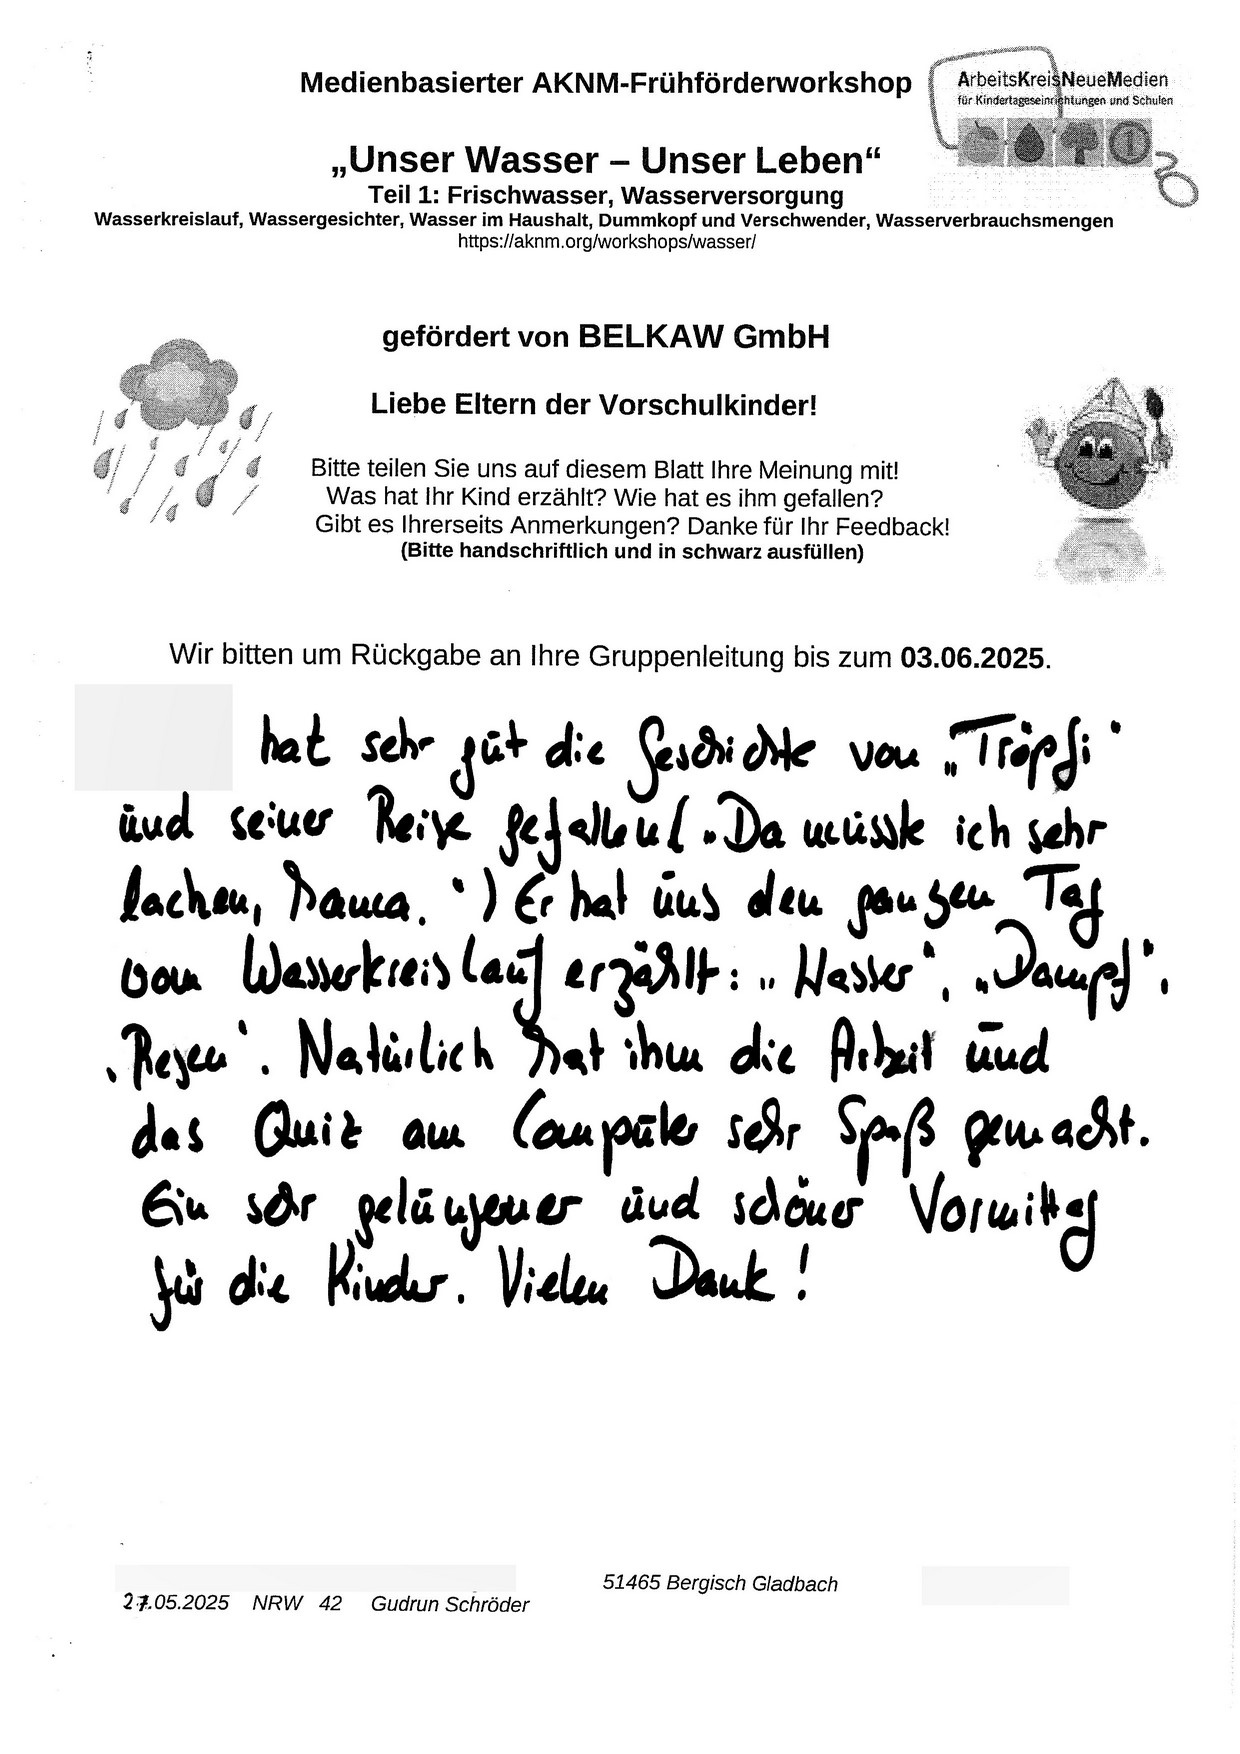 Medienbasierter AKNM-Frühförderworkshop
ArbeitsKreisNeueMedien
für Kindertageseinrichtungen und Schulen
„Unser Wasser – Unser Leben“
Teil 1: Frischwasser, Wasserversorgung
Wasserkreislauf, Wassergesichter, Wasser im Haushalt, Dummkopf und Verschwender, Wasserverbrauchsmengen
https://aknm.org/workshops/wasser/
gefördert von BELKAW GmbH
Liebe Eltern der Vorschulkinder!
Bitte teilen Sie uns auf diesem Blatt Ihre Meinung mit!
Was hat Ihr Kind erzählt? Wie hat es ihm gefallen?
Gibt es Ihrerseits Anmerkungen? Danke für Ihr Feedback!
(Bitte handschriftlich und in schwarz ausfüllen)
Wir bitten um Rückgabe an Ihre Gruppenleitung bis zum 03.06.2025.
hat sehr gut die Geschichte von „Tröpfi“
und seiner Reise gefallen ( „Da müsste ich sehr
lachen, Mama.“) Er hat uns den ganzen Tag
vom Wasserkreislauf erzählt: „Wasser“, „Dampf“,
„Regen“. Natürlich hat ihm die Arbeit und
das Quiz am Computer sehr Spaß gemacht.
Ein sehr gelungener und schöner Vormittag
für die Kinder. Vielen Dank!
51465 Bergisch Gladbach
27.05.2025 NRW 42 Gudrun Schröder